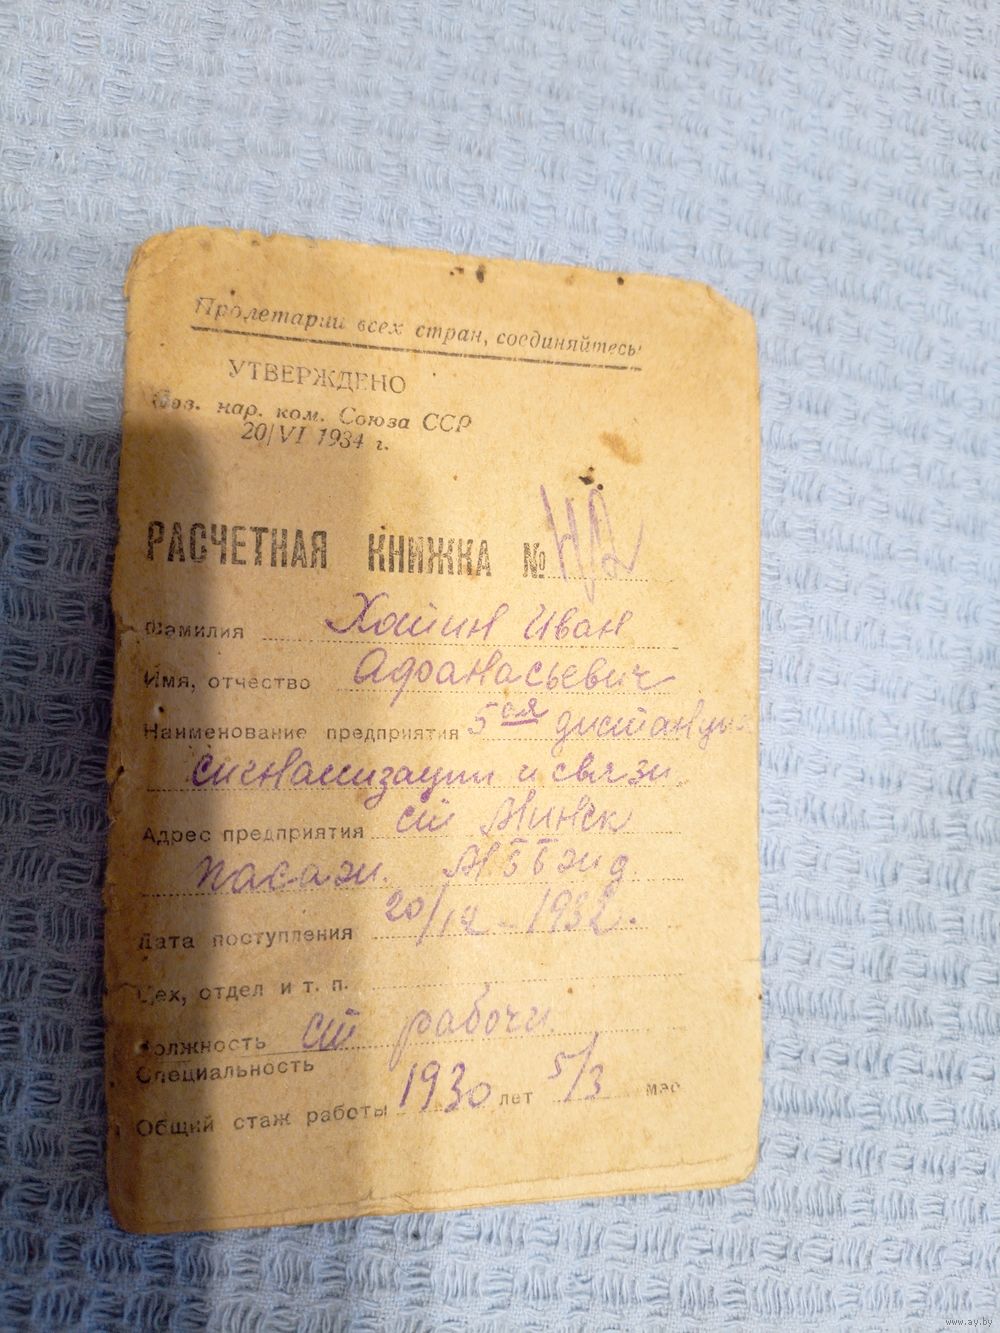 Пролетарии всех стран, соединяйтесь!
УТВЕРЖДЕНО
Сов. нар. ком. Союза ССР
20/VI 1934 г.
РАСЧЕТНАЯ КНИЖКА №
Фамилия Хашин Иван
Имя, отчество Афанасьевич
Наименование предприятия 5ся дистанция
сигнализации и связи
Адрес предприятия ст Минск
пасаж. МББжид.
Дата поступления 20/IV - 1932.
Цех, отдел и т. п.
Должность ст рабочи
Специальность
Общий стаж работы 1930 лет 5/3 мес
www.ay.by